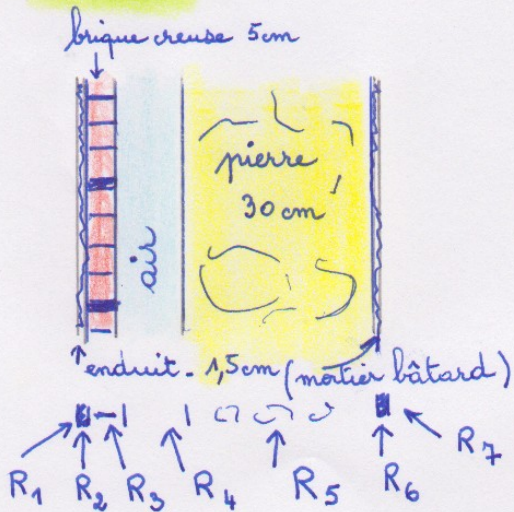 brique creuse 5cm
air
pierre
30 cm
enduit - 1,5cm (mortier bâtard)
R1 R2 R3 R4 R5 R6 R7